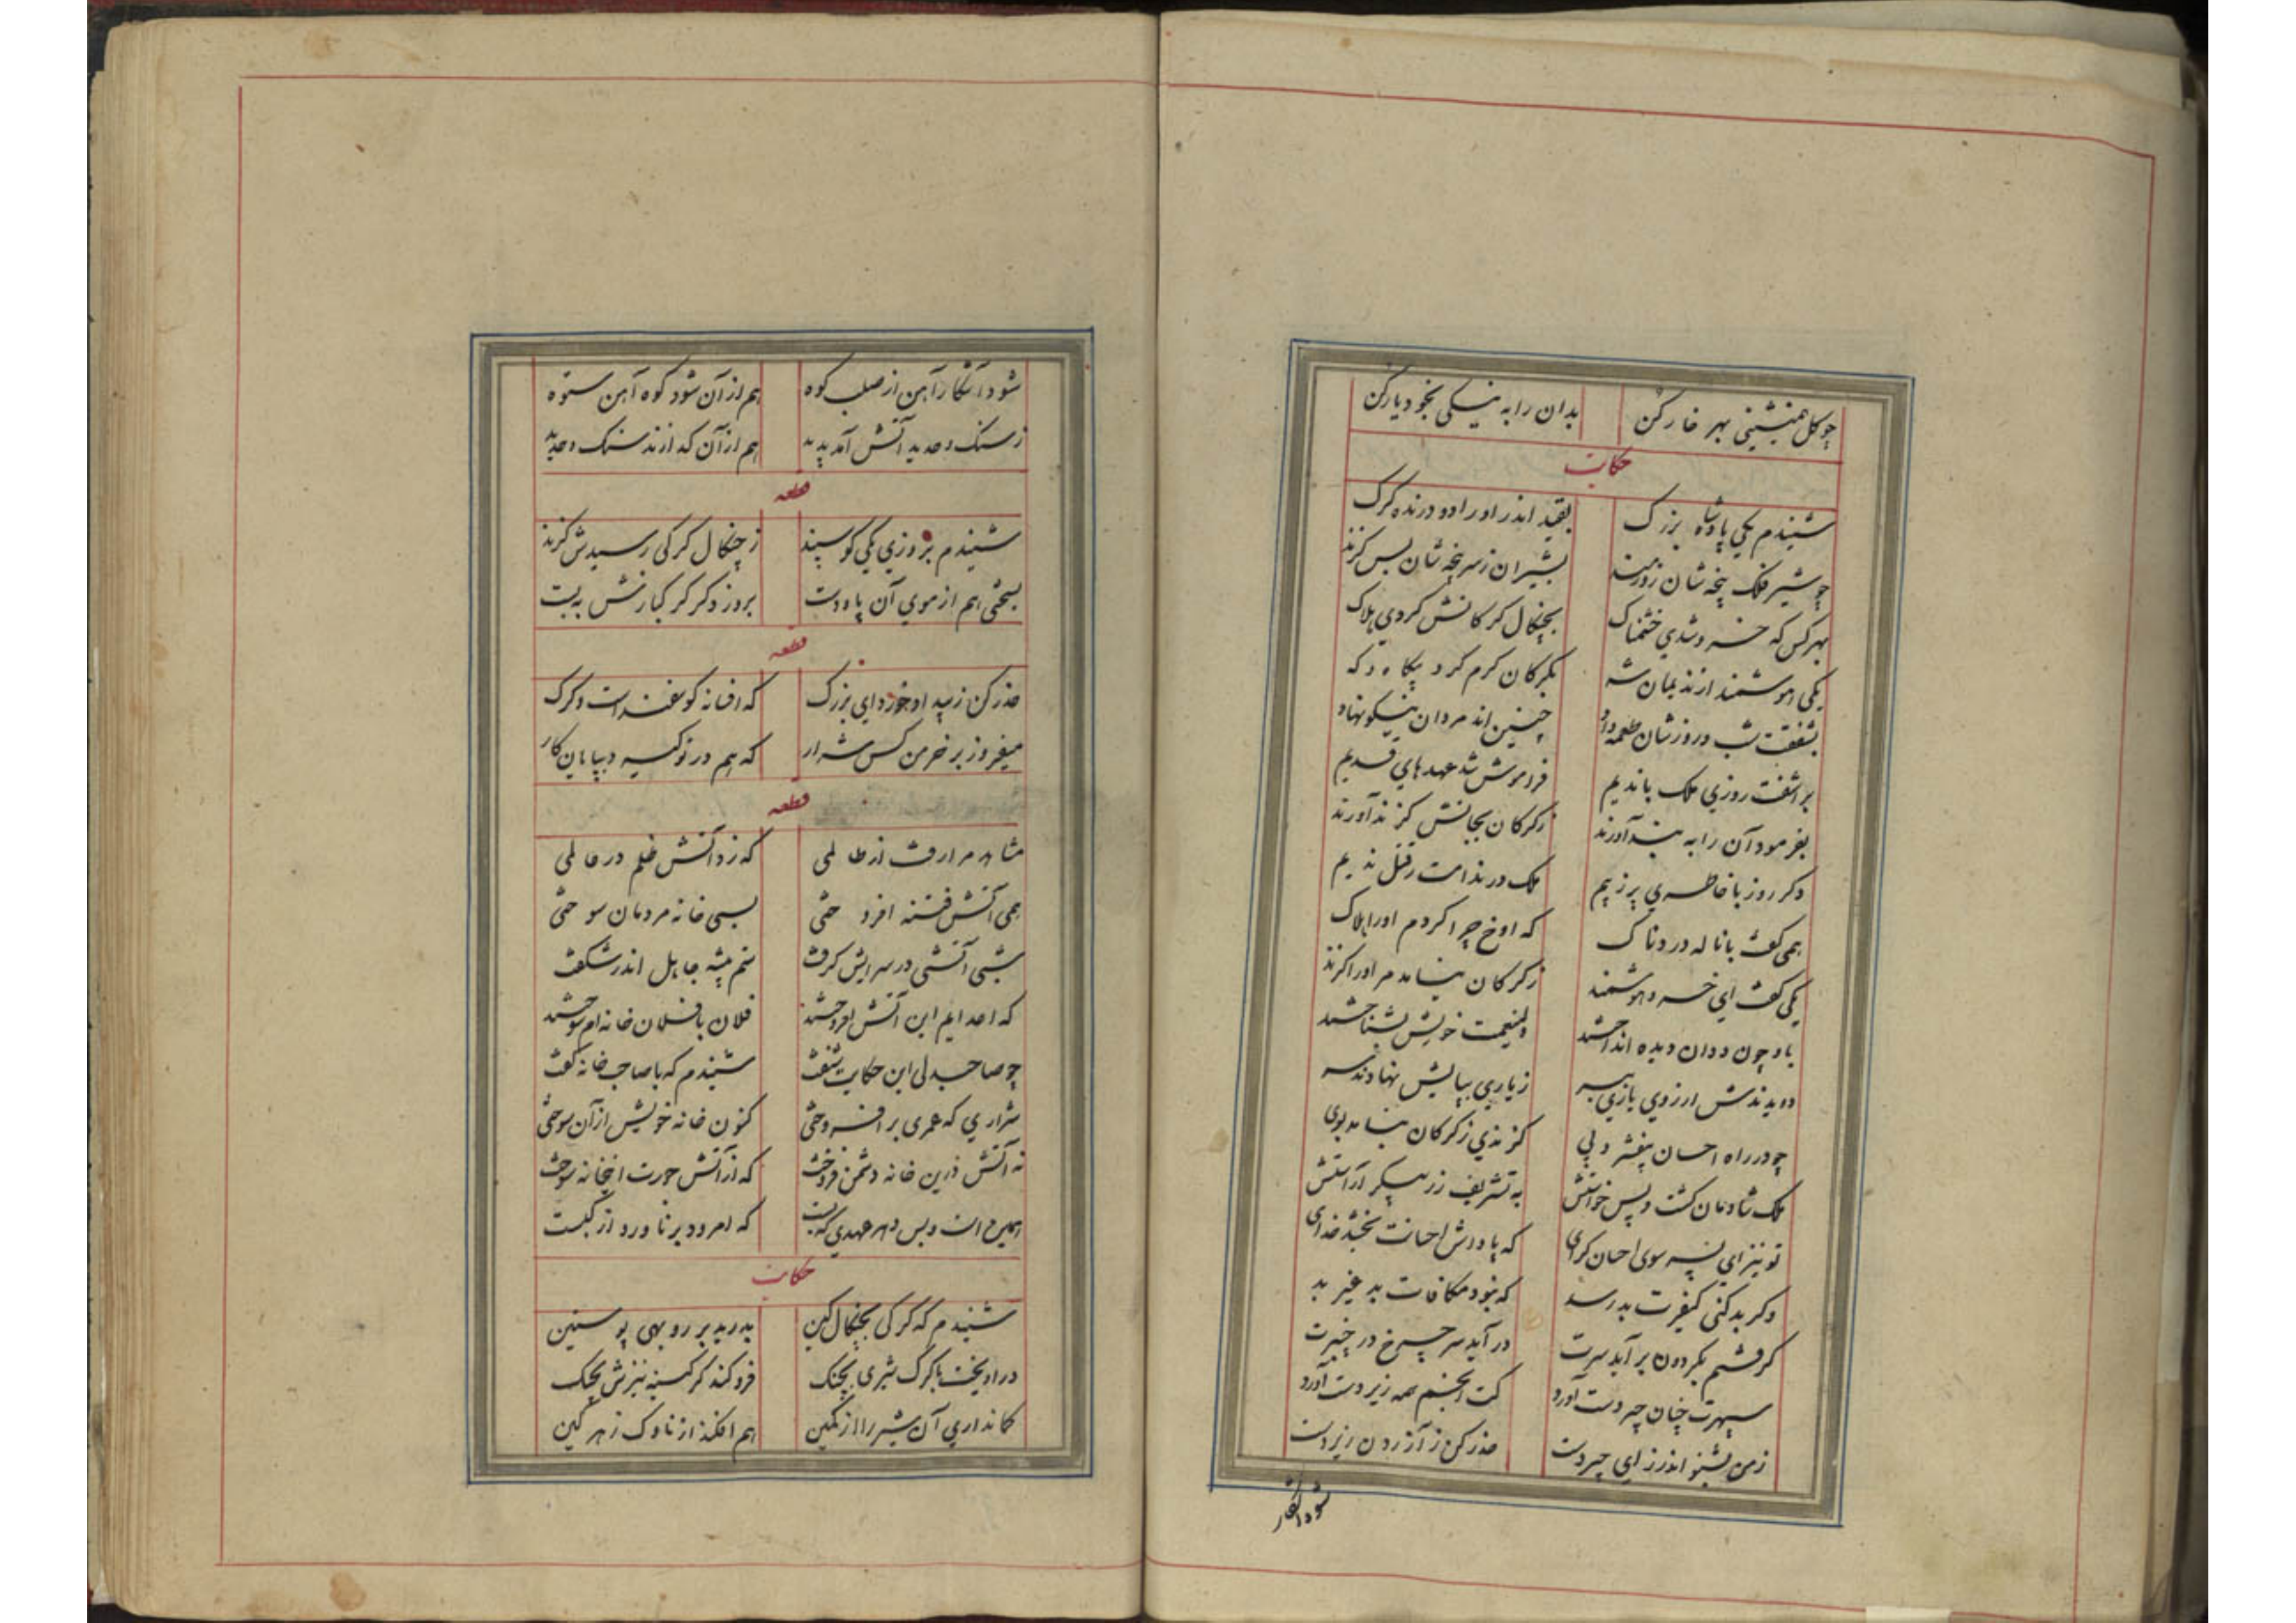 چو کل همنشینی بهر خار کن بدان را به نیکی بخود یار کن
حکایت
شنیدم یکی پادشاه بزرک بقید اندر اورا دد درنده کرک
چو شیر فلک پنجه شان زورمند بشیران ز سر پنجه شان بس کزند
بهر کس که خسرو شدی خشمناک بچنکال کرکانش کردی هلاک
یکی هوشمند از ندیمان شه بکرکان کرم کرد بیکاه و که
بشفقت شب و روزشان طعمه داد چنین اند مردان نیکو نهاد
بر اشفت روزی ملک با ندیم فراموش شد عهدهای قدیم
بفرمود آن را به بند آورند ز کرکان بجانش کزند آورند
دکر روز با خاطری پر ز بیم ملک در ندامت ز قتل ندیم
همی کفت با ناله دردناک که اوخ چرا کردم اورا هلاک
یکی کفت ای خسرو هوشمند ز کرکان نیامد مر اورا کزند
باو چون ددان دیده انداختند ولینعمت خویش بشناختند
دویدندش از روی یاری بسر ز یاری بپایش نهادند سر
چو در راه احسان بیفشرد پی کزندی ز کرکان نیامد بوی
ملک شادمان کشت و پس خواستش به تشریف زر پیکر آراستش
تو نیز ای پسر سوی احسان کرای که پاداش احسانت بخشد خدای
دکر بد کنی کیفرت بد رسد که نبود مکافات بد غیر بد
کرفتم بکردون بر آید سرت در آید سر چرخ در چنبرت
سپهرت چنان چیر دست آورد کت انجم همه زیر دست آورد
ز من بشنو اندرز ای چیر دست حذر کن ز آزردن زیر دست
شود آشکار
شود آشکارا آهن از صلب کوه هم از آن شود کوه آهن ستوه
ز سنک و حدید آتش آمد پدید هم از آن کدازند سنک و حدید
قطعه
شنیدم بروزی یکی کوسپند ز چنکال کرکی رسیدش کزند
بسختی هم از موی آن پا و دست بروز دکر کرکبارنش به بست
قطعه
حذر کن ز بیداد خورد ای بزرک که افسانه کوسفند است و کرک
میفروز بر خرمن کس شرار که هم در تو کیرد بپایان کار
قطعه
مشاهد مرا رفت از ظالمی که زد آتش ظلم در عالمی
همی آتش فتنه افروختی بسی خانه مردمان سوختی
شبی آتشی در سرایش کرفت ستم پیشه جاهل اندر شکفت
که اعدایم این آتش افروختند فلان با فلان خانه ام سوختند
چو صاحبدلی این حکایت شنفت شنیدم که با صاحب خانه کفت
شراری که عمری بر افروختی کنون خانه خویش از آن سوختی
نه آتش درین خانه دشمن فروخت که از آتش جورت این خانه سوخت
همین است و بس در عهدی که بست که امرود بر ناورد از کبست
حکایت
شنیدم که کرکی بچنکال کین بدرید بر روبهی پوستین
در اویخت با کرک شیری بجنک فرو کند کرکینه نیزش بچنک
کمانداری آن شیر را از کمین هم افکند از ناوک زهر کین